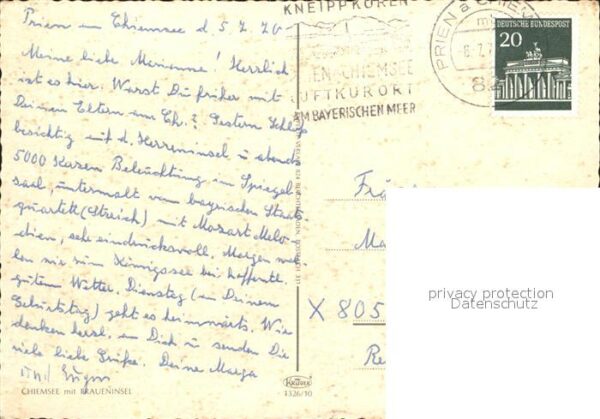 Prien am Chiemsee d 5.7.70
Meine liebe Marianne! Herrlich
ist es hier. Warst Du früher mit
Deinen Eltern am Ch.? Gestern Schloß
besichtig auf d. Herreninsel u abends
5000 Kerzen Beleuchtung im Spiegel
saal, untermalt vom bayrischen Staats
quartett (Streich) mit Mozart Melo-
dien, sehr eindrucksvoll. Morgen wol-
len wir zum Königssee bei hoffentl.
gutem Wetter. Dienstag (an Deinem
Geburtstag) geht es heimwärts. Wir
denken herzl. an Dich u senden Dir
viele liebe Grüße. Deine Marga
und
CHIEMSEE mit FRAUENINSEL
KNEIPPKUREN
PRIEN-CHIEMSEE
LUFTKURORT
AM BAYERISCHEN MEER
PRIEN a CHIEM
-8.-7.7
DEUTSCHE BUNDESPOST
20
Frä
Ma
X 805
Re
privacy protection
Datenschutz
KRÜGER
1326/10